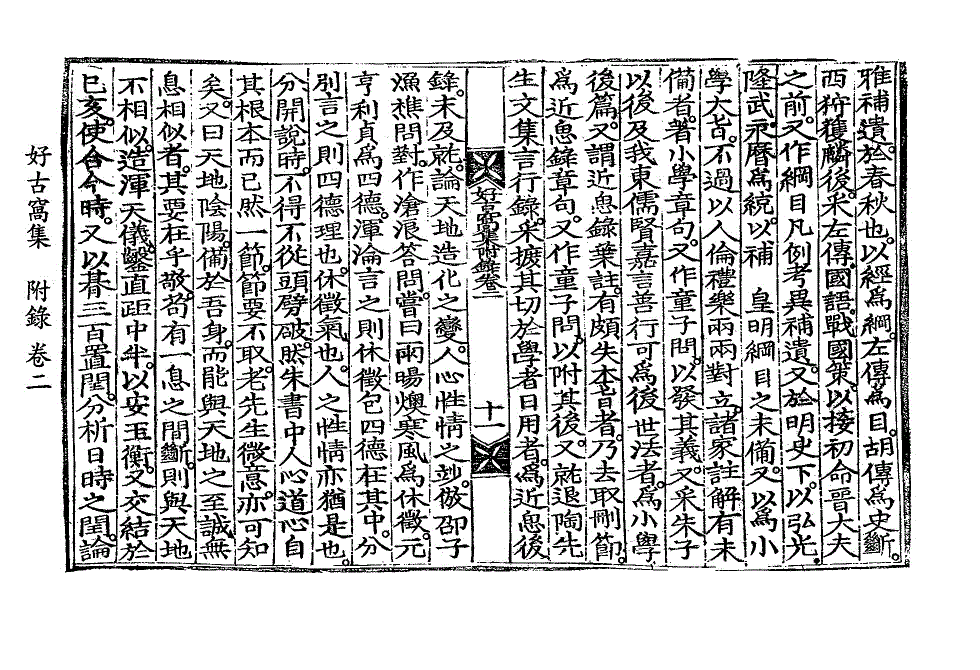 雅補遺。於春秋也。以經爲綱。左傳爲目。胡傳爲史斷。
西狩獲麟後。采左傳國語。戰國策。以接初命晉大夫
之前。又作綱目凡例考異補遺。又於明史下。以弘光
隆武永曆爲統。以補 皇明綱目之未備。又以爲小
學大旨。不過以人倫禮樂兩兩對立。諸家註解有未
備者。著小學章句。又作童子問。以發其義。又采朱子
以後及我東儒賢嘉言善行可爲後世法者。爲小學
後篇。又謂近思錄葉註。有頗失本旨者。乃去取刪節。
爲近思錄章句。又作童子問。以附其後。又就退陶先
生文集言行錄。采摭其切於學者日用者。爲近思後
好古窩集附錄卷二
十一
錄。未及就。論天地造化之變。人心性情之妙。倣邵子
漁樵問對。作滄浪答問。嘗曰雨暘燠寒風爲休徵。元
亨利貞爲四德。渾淪言之則休徵包四德在其中。分
別言之則四德理也。休徵氣也。人之性情亦猶是也。
分開說時。不得不從頭劈破。然朱書中人心道心自
其根本而已然一節。節要不取。老先生微意。亦可知
矣。又曰天地陰陽。備於吾身。而能與天地之至誠無
息相似者。其要在乎敬。苟有一息之間斷。則與天地
不相似。造渾天儀。鑿直距中牟。以安玉衡。又交結於
巳亥。使合今時。又以朞三百置閏。分析日時之閏。論
好古窩集 附錄 卷二